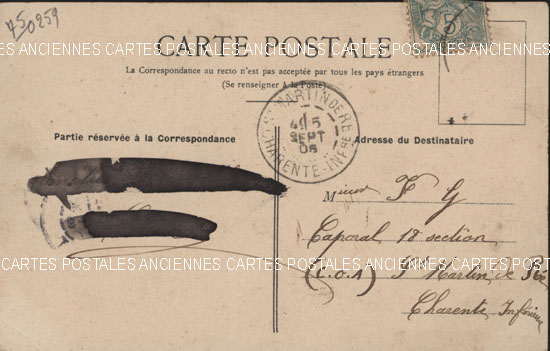 750259
CARTE POSTALE
CARTES POSTALES ANCIENNES CARTES POSTALES ANCIENNES CARTES POSTALES
La Correspondance au recto n'est pas acceptée par tous les pays étrangers
(Se renseigner à la Poste)
ST MARTIN DE RE
5
SEPT
05
CHARENTE-INFRE
Partie réservée à la Correspondance
Adresse du Destinataire
CARTES POSTALES ANCIENNES CARTES POSTALES ANCIENNES CARTES POSTALES
Mieur F G
Caporal 18 section
CARTES POSTALES ANCIENNES CARTES POSTALES ANCIENNES CARTES POSTALES
(C.O.A) St Martin de Ré
Charente Inférieure